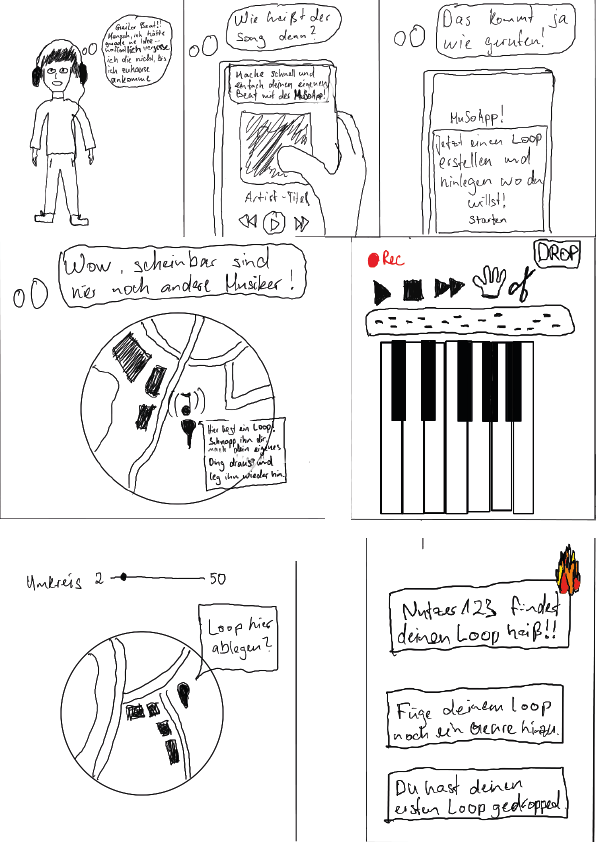 Geiler Beat!!
Mensch, ich hätte
gerade ne Idee...
hoffentlich vergesse
ich die nicht, bis
ich zuhause
ankomme
Wie heißt der
Song denn?
Mache schnell und
einfach deinen eigenen
Beat mit der MuSoApp!
Artist-Titel
Das kommt ja
wie gerufen!
MuSoApp!
Jetzt einen Loop
erstellen und
hinlegen wo du
willst!
Starten
Wow, scheinbar sind
hier noch andere Musiker!
Hier liegt ein Loop!
Schnapp ihn dir,
mach dein eigenes
Ding draus und
leg ihn wieder hin.
Rec
DROP
Umkreis 2 50
Loop hier
ablegen?
Nutzer123 findet
deinen Loop heiß!!
Füge deinem Loop
noch ein Genre hinzu.
Du hast deinen
ersten Loop gedropped